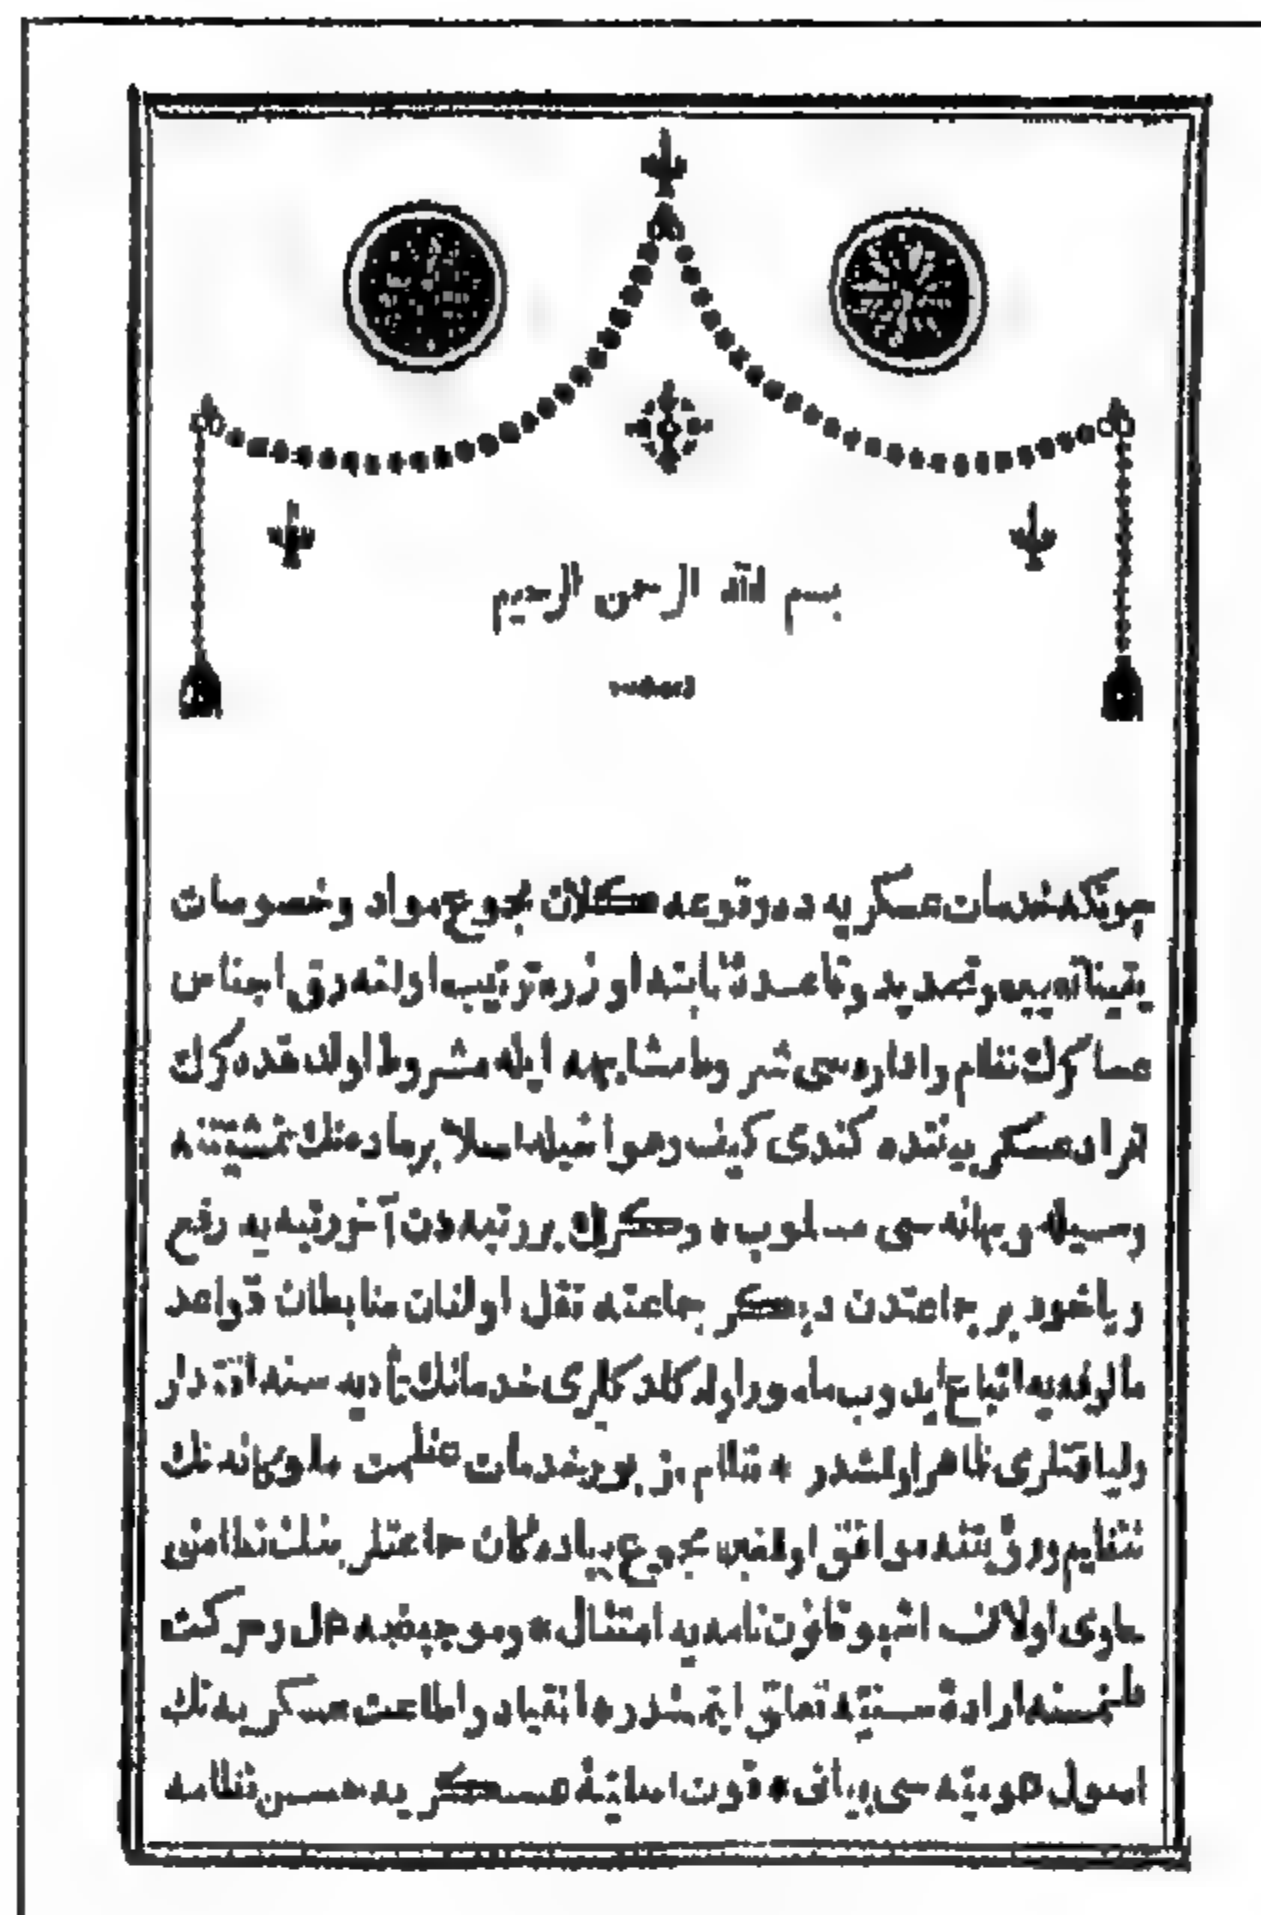 بسم الله الرحمن الرحيم
چونكه خدمات عسكريه ده وقوعه كلان مجموع مواد وخصوصات
وتحديد وقاعدهٔ ثابته اوزره ترتيب اولنه رق اجناس
عساكرك نظام واداره سى شروط مشابهه ايله مشروط اولدقده كرك
افراد عسكر بيننده كندى كيف وهواسيله اصلا بر ماده نك تمشيتنه
وسيله وبهانه سى مسلوب * وكرك بر رتبه دن آخر رتبه يه رفع
وياخود بر جماعتدن ديكر جماعته نقل اولنان ضابطان قواعد
مألوفه يه اتباع ايدوب مأمور اوله كلدكلرى خدماتك تأديه سنه اقتدار
ولياقتلرى ظاهر اولمشدر * نظام بو خدمات ملوكانه نك
تنظيم ورؤيتنه موافق اولغين مجموع پيادكان جماعتلرينك نظامنى
حاوى اولان اشبو قانون نامه يه امتثال * وموجبنجه عمل وحركت
قلنمسنه ارادهٔ سنيّه تعلق ايتمشدر * انقياد واطاعت عسكريه نك
اصول عموميّه سى بيانى * قوت اصليّهٔ عسكريه حسن نظامه